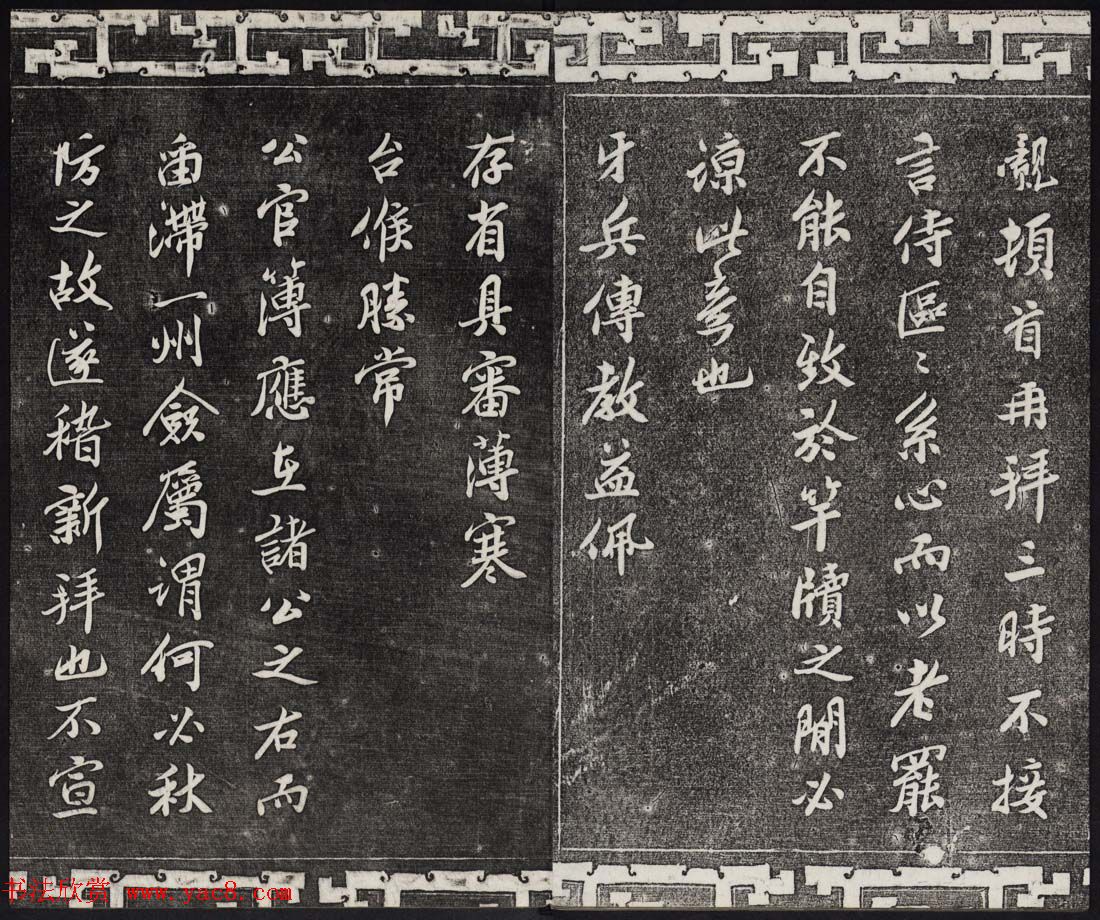 覿頓首再拜三時不接
言侍區〻系心而以老罷
不能自致於竿牘之間必
諒此意也
牙兵傳教益佩
存省具審薄寒
台候勝常
公官簿應在諸公之右而
留滯一州僉屬謂何必秋
防之故遂稽新拜也不宣
书法欣赏 www.yac8.com